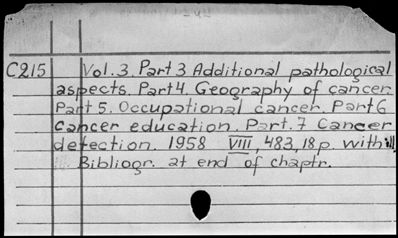 -4-
C215 Vol.3. Part 3 Additional pathological
aspects. Part 4. Geography of cancer
Part 5. Occupational cancer. Part 6
Cancer education. Part. 7 Cancer
detection. 1958 VIII, 483, 18 p. with ill.
Bibliogr. at end of chaptr.